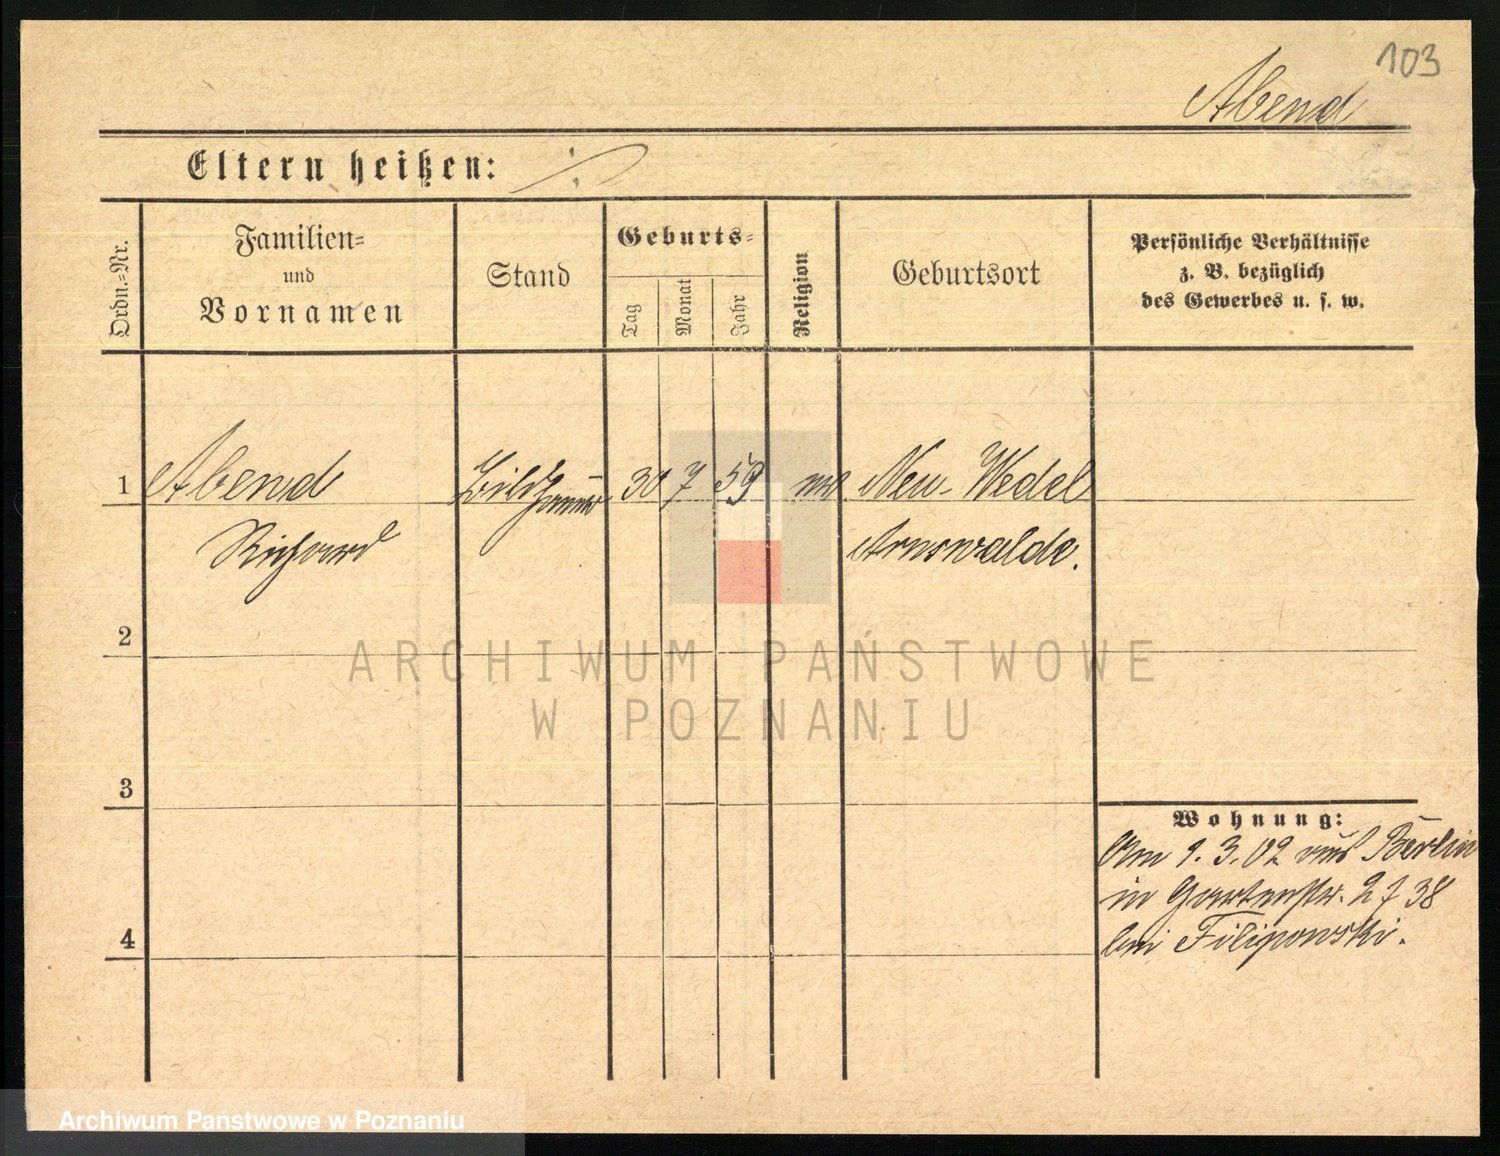 103
Abend
Eltern heißen: ./.
Ordn.-Nr.
Familien-
und
Vornamen
Stand
Geburts-
Tag
Monat
Jahr
Religion
Geburtsort
Persönliche Verhältnisse
z. B. bezüglich
des Gewerbes u. s. w.
1 Abend Bildhauer 30 7 59 Neu-Wedel
Richard Arnswalde.
2
ARCHIWUM PAŃSTWOWE
W POZNANIU
3
Wohnung:
Am 1.3.02 aus Berlin
in Gartenstr. 27 38
bei Filipowski.
4
Archiwum Państwowe w Poznaniu